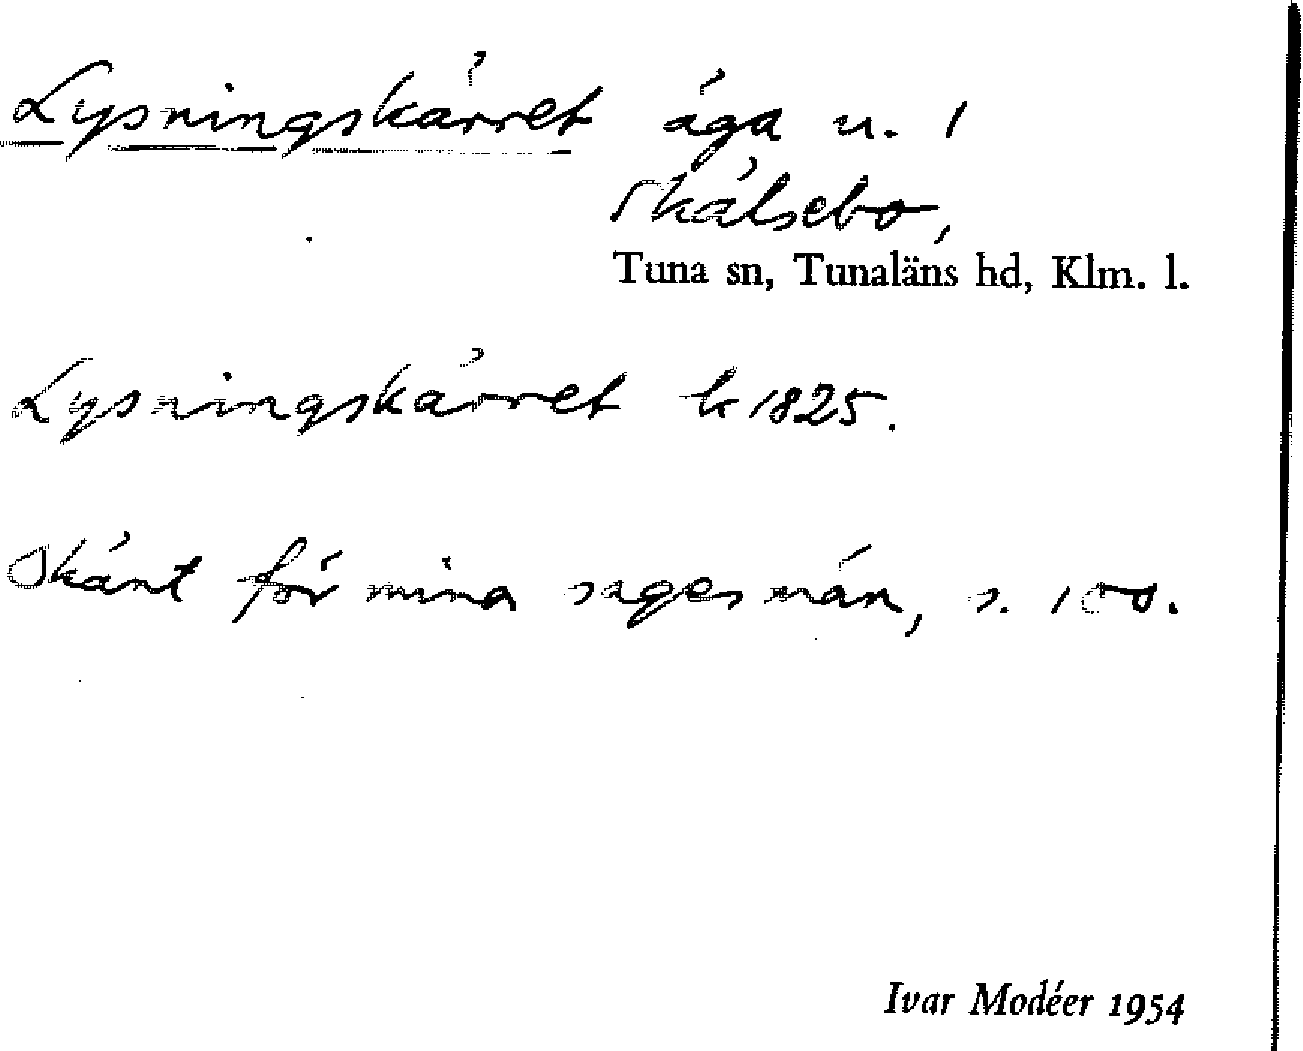 Lysningskärret äga u. 1
Skälsebo,
Tuna sn, Tunaläns hd, Klm. l.
Lysningskärret k 1825.
Okänt för mina sagesmän, s. 100.
Ivar Modéer 1954